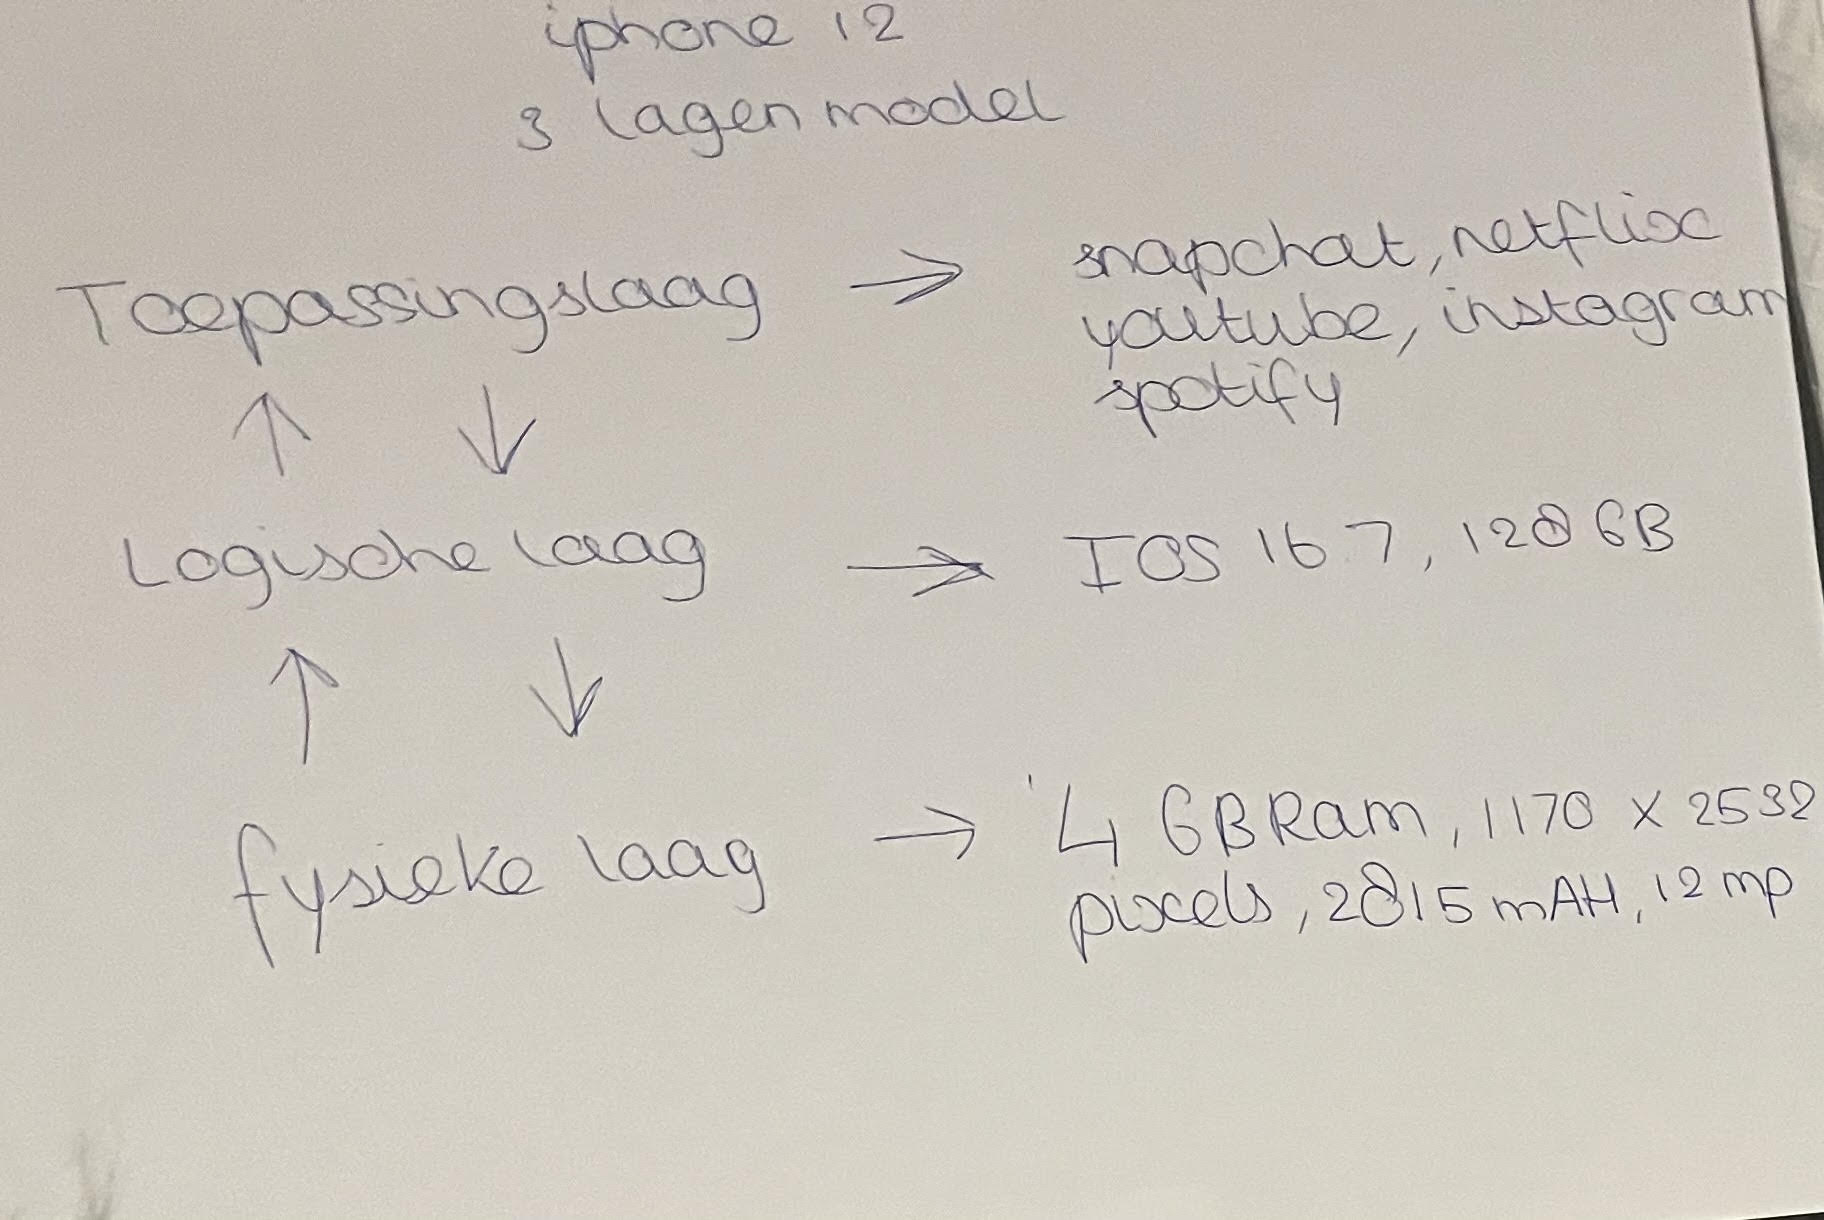 iphone 12
3 lagen model
Toepassingslaag → snapchat, netflix
youtube, instagram
spotify
↑ ↓
Logische laag → IOS 16.7, 128 GB
↑ ↓
fysieke laag → 4 GB Ram, 1170 x 2532
pixels, 2815 mAH, 12 mp